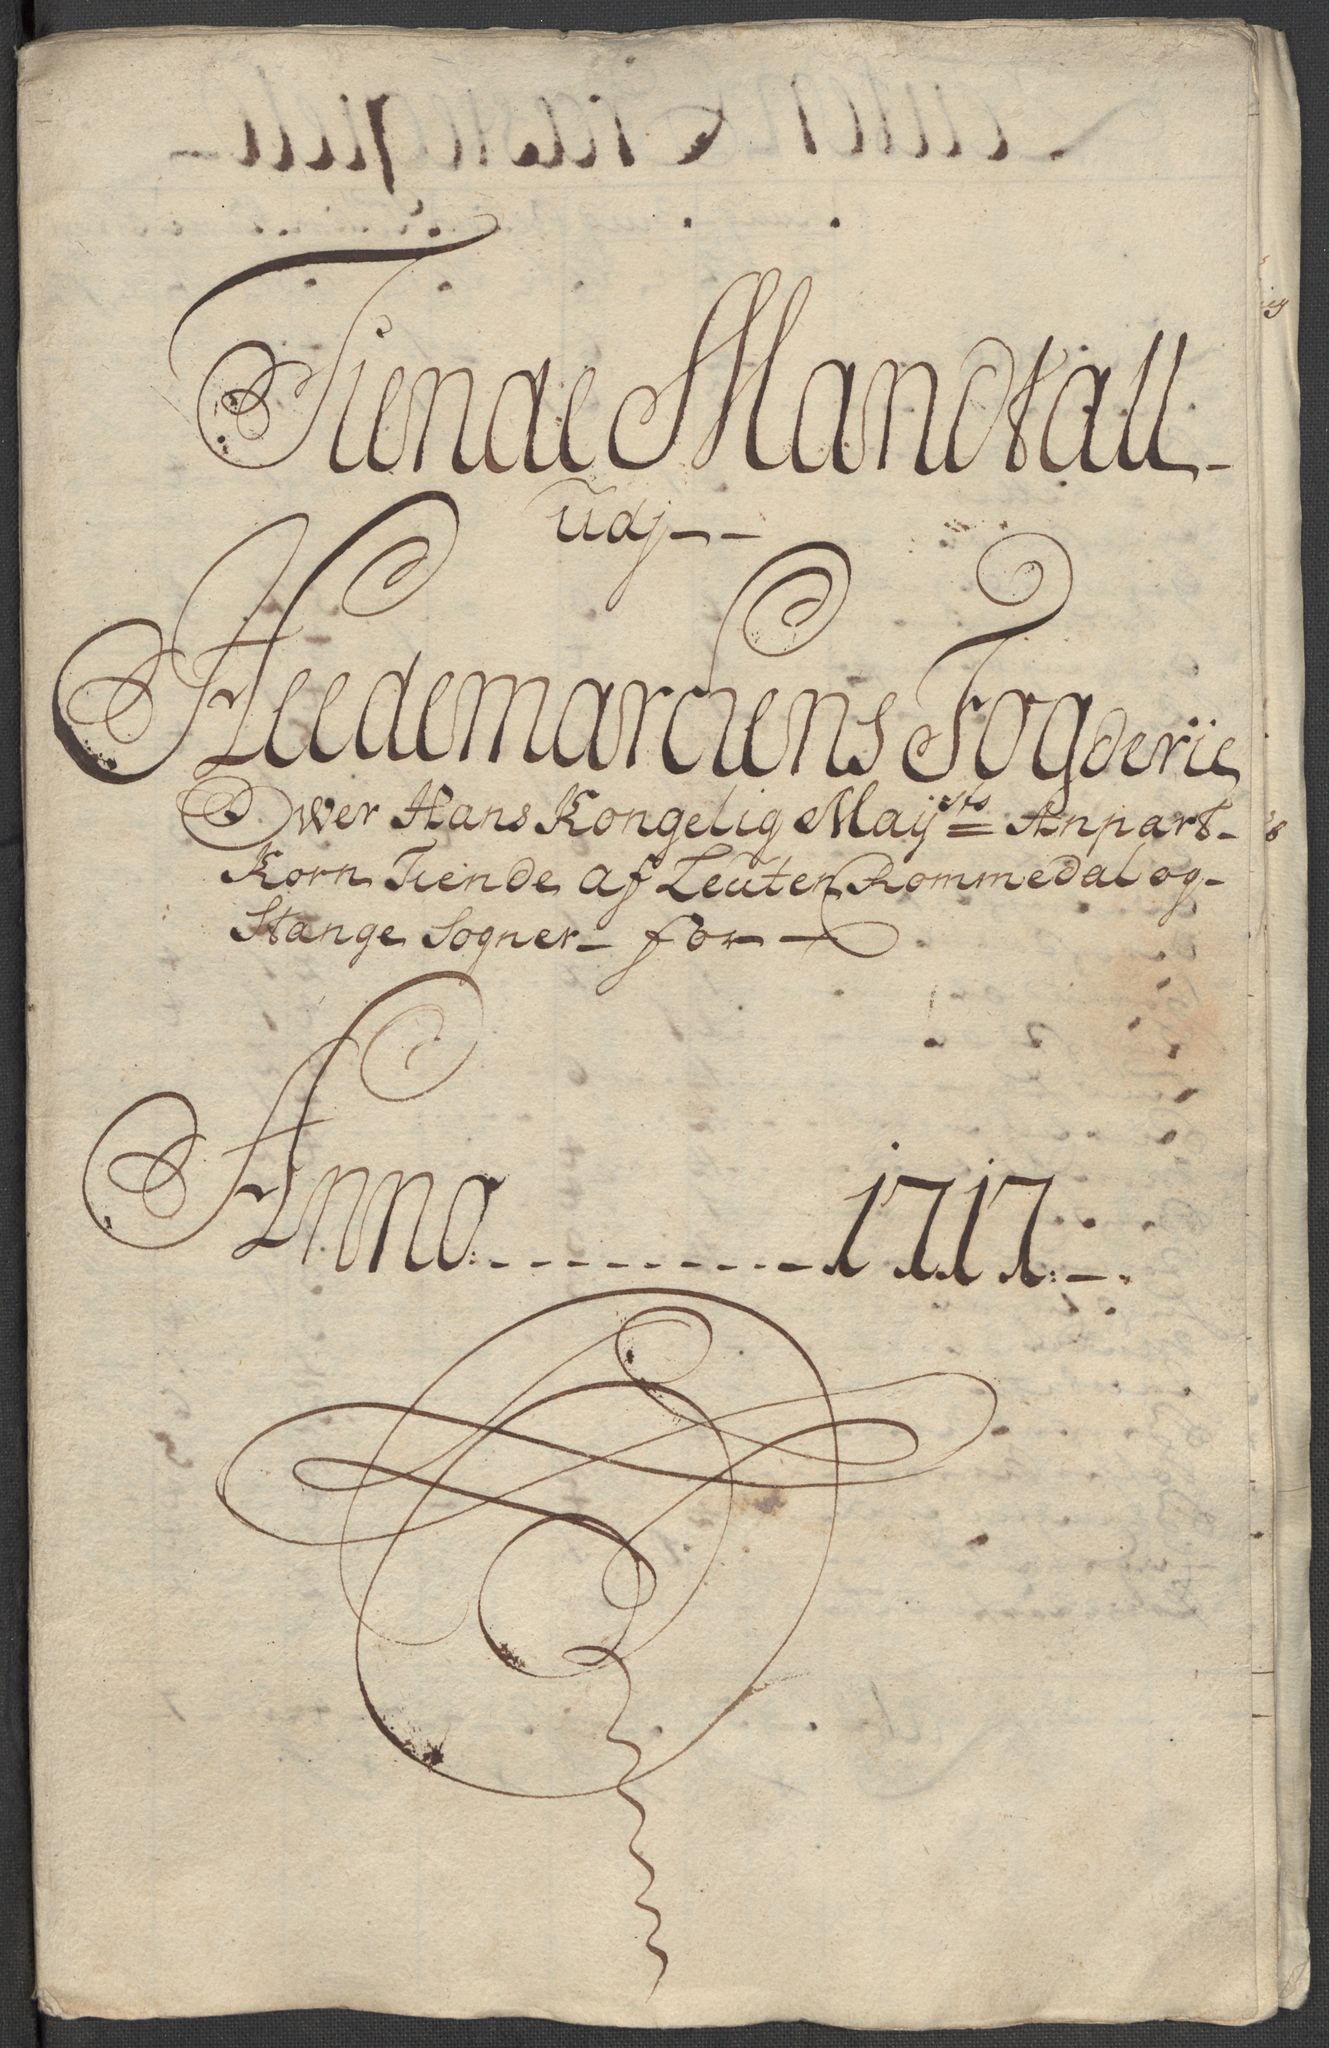 Tiende Mandtall
Udj
Heedemarckens Fogderie
Over Hans Kongelig Maysts Anpart
Korn Tiende af Leuten Rommedal og
Stange Sogner for
Anno 1717